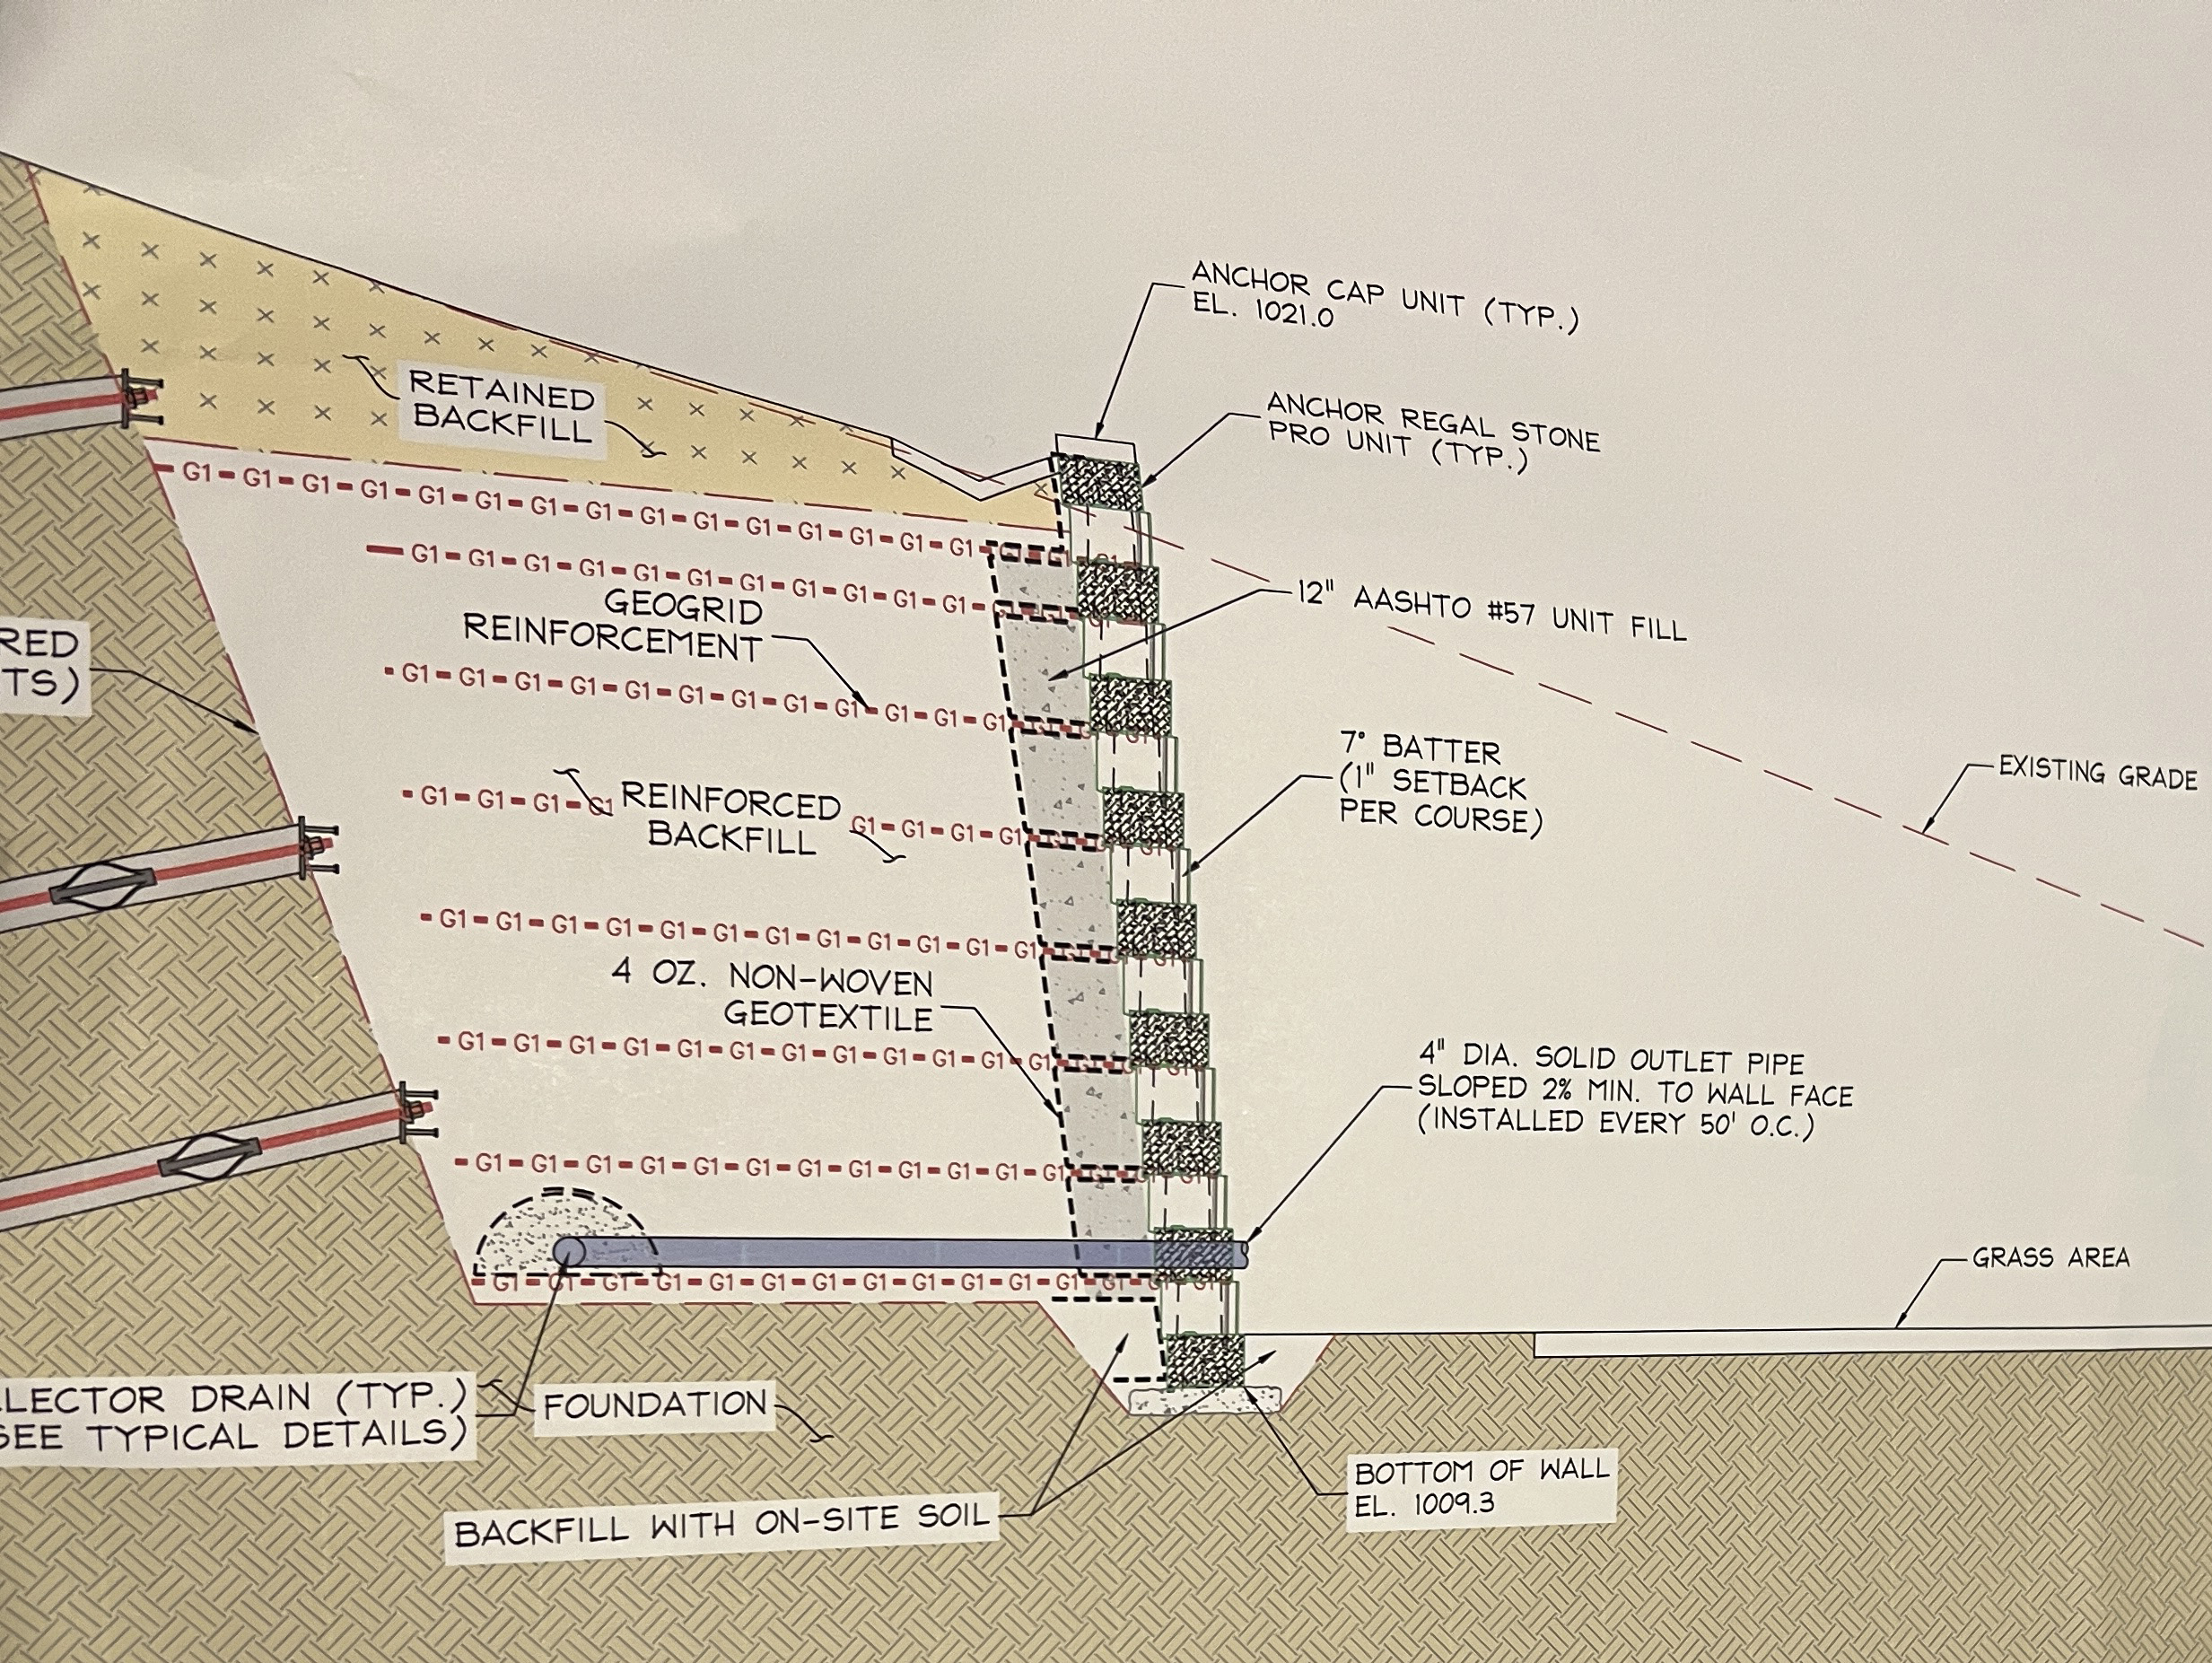 ANCHOR CAP UNIT (TYP.)
EL. 1021.0
RETAINED
BACKFILL
ANCHOR REGAL STONE
PRO UNIT (TYP.)
G1 G1 G1 G1 G1 G1 G1 G1 G1 G1 G1 G1 G1 G1 G1 G1 G1
G1 G1 G1 G1 G1 G1 G1 G1 G1 G1 G1 G1 G1
GEOGRID
REINFORCEMENT
12" AASHTO #57 UNIT FILL
RED
TS)
G1 G1 G1 G1 G1 G1 G1 G1 G1 G1 G1 G1 G1 G1
7° BATTER
(1" SETBACK
PER COURSE)
EXISTING GRADE
G1 G1 G1 G1 REINFORCED G1 G1 G1 G1
BACKFILL
G1 G1 G1 G1 G1 G1 G1 G1 G1 G1 G1 G1
4 OZ. NON-WOVEN
GEOTEXTILE
G1 G1 G1 G1 G1 G1 G1 G1 G1 G1 G1 G1
4" DIA. SOLID OUTLET PIPE
SLOPED 2% MIN. TO WALL FACE
(INSTALLED EVERY 50' O.C.)
G1 G1 G1 G1 G1 G1 G1 G1 G1 G1 G1 G1
GRASS AREA
G1 G1 G1 G1 G1 G1 G1 G1 G1 G1 G1 G1 G1
LLECTOR DRAIN (TYP.)
SEE TYPICAL DETAILS)
FOUNDATION
BOTTOM OF WALL
EL. 1009.3
BACKFILL WITH ON-SITE SOIL